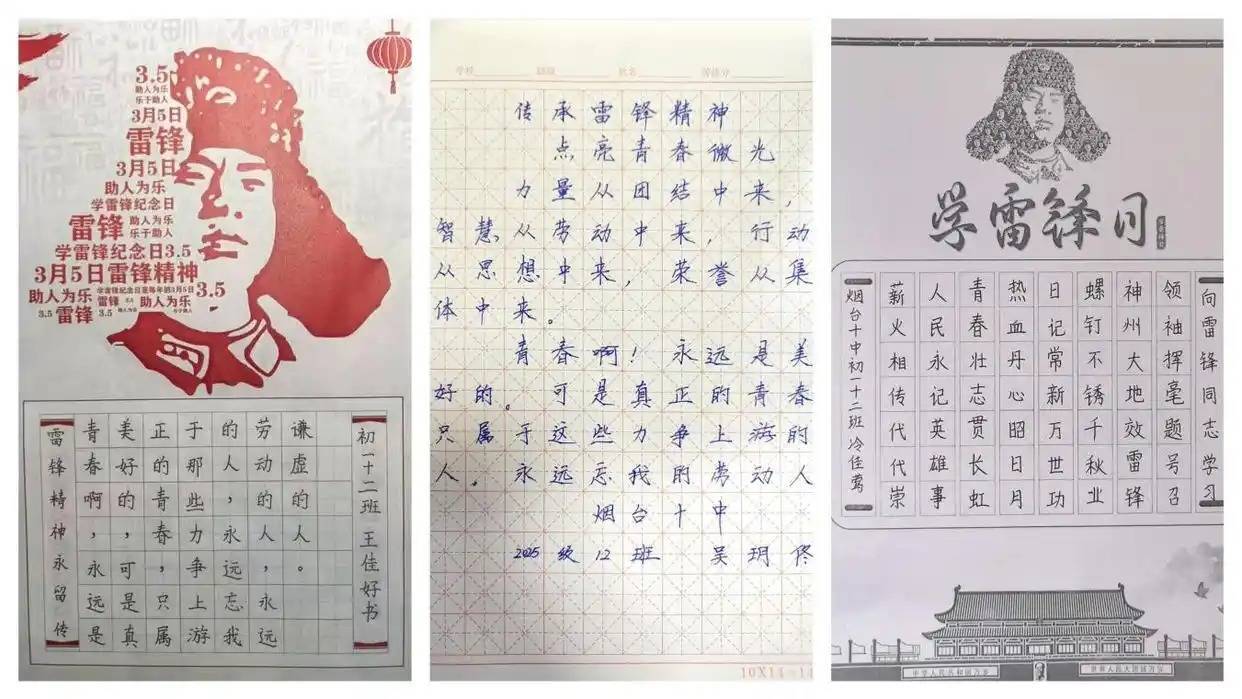 3.5
助人为乐
乐于助人
3月5日
雷锋
3月5日
助人为乐
学雷锋纪念日
雷锋
助人为乐
乐于助人
学雷锋纪念日3.5
3月5日雷锋精神
学雷锋纪念日是每年的3月5日
助人为乐
雷锋
助人为乐
3.5
3.5
雷锋
3.5
雷锋精神永留传
青春啊，永远是
美好的，可是真
正的青春，只属
于那些力争上游
的人，永远忘我
劳动的人，永远
谦虚的人。
初一十二班 王佳好书
学校 班级 姓名
传承雷锋精神
点亮青春微光
力量从团结中来，
智慧从劳动中来，行动
从思想中来，荣誉从集
体中来。
青春啊！永远是美
好的。可是真正的青春
只属于这些力争上游的
人。永远忘我的劳动人
烟台十中
2025级12班 吴玥佟
学雷锋日
向雷锋同志学习
领袖挥毫题号召
神州大地效雷锋
螺钉不锈千秋业
日记常新万世功
热血丹心昭日月
青春壮志贯长虹
人民永记英雄事
薪火相传代代崇
烟台十中初一十二班 冷佳莺
中华人民共和国万岁
世界人民大团结万岁